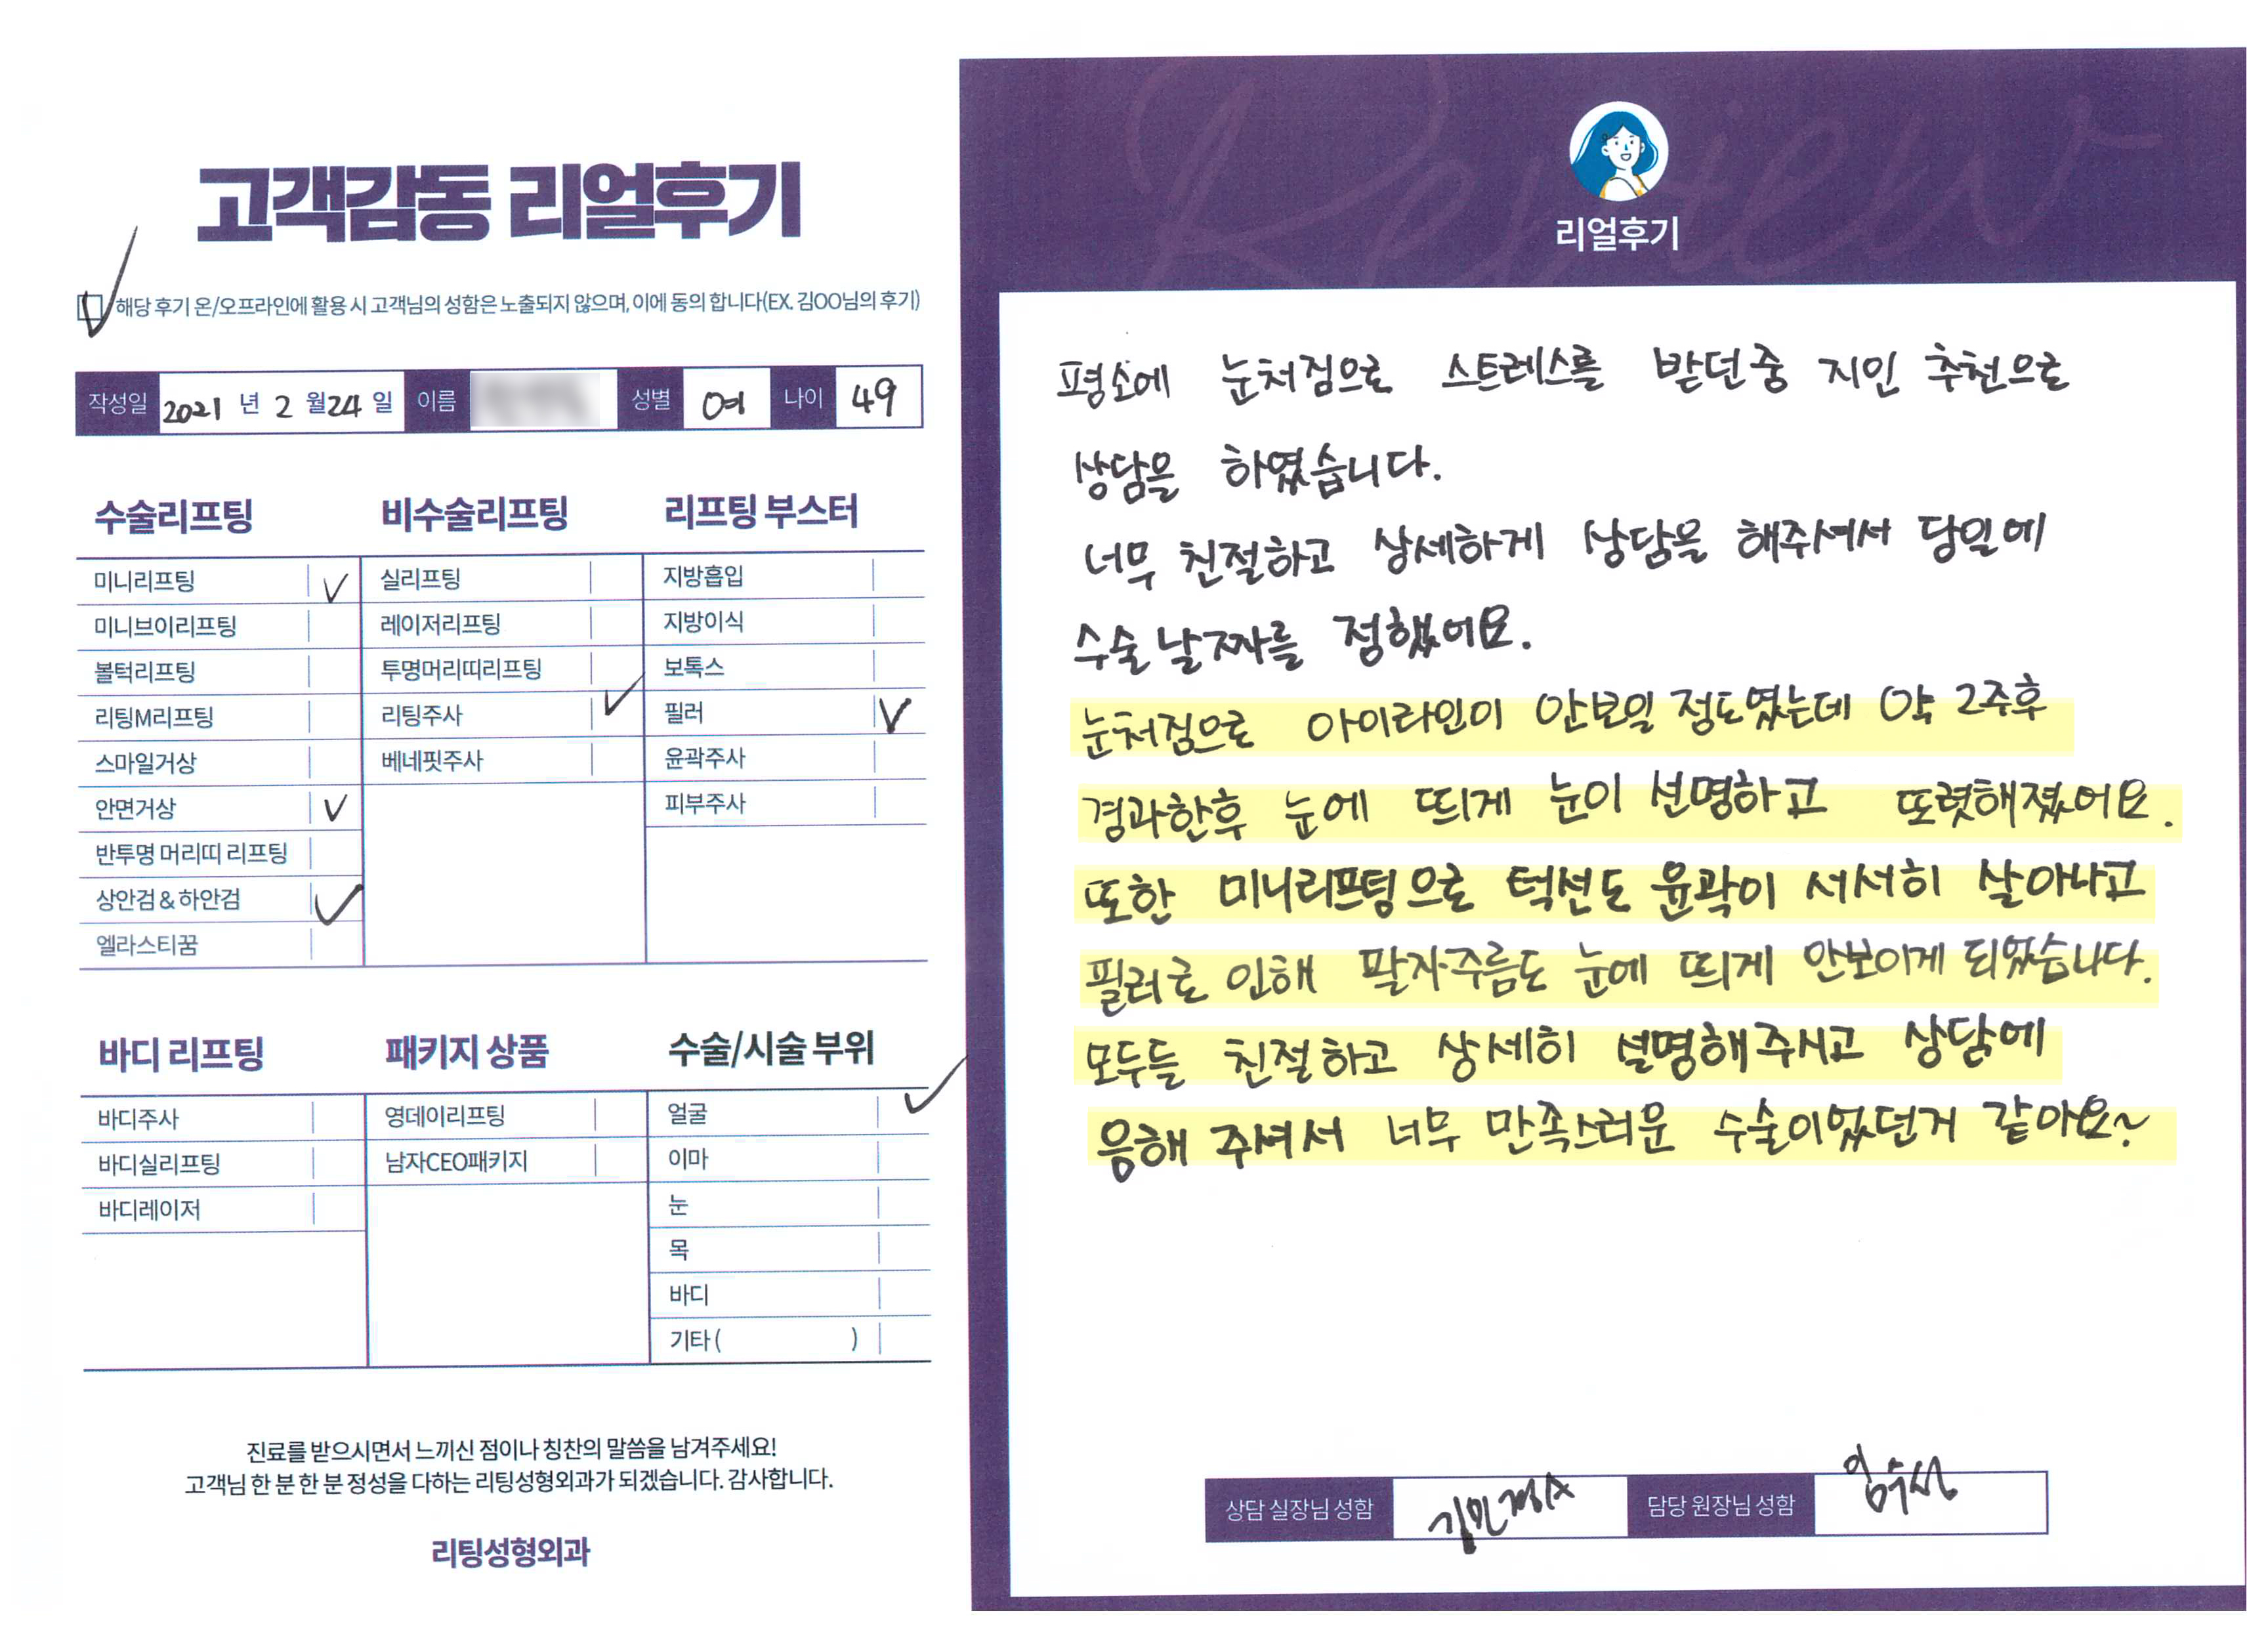 고객감동 리얼후기
해당 후기 온/오프라인에 활용 시 고객님의 성함은 노출되지 않으며, 이에 동의 합니다(EX. 김OO님의 후기)
작성일 2021 년 2 월 24 일 이름 성별 여 나이 49
수술리프팅
미니리프팅 ✓
미니브이리프팅
볼턱리프팅
리팅M리프팅
스마일거상
안면거상 ✓
반투명 머리띠 리프팅
상안검 & 하안검 ✓
엘라스티꿈
비수술리프팅
실리프팅
레이저리프팅
투명머리띠리프팅
리팅주사 ✓
베네핏주사
리프팅 부스터
지방흡입
지방이식
보톡스
필러 ✓
윤곽주사
피부주사
바디 리프팅
바디주사
바디실리프팅
바디레이저
패키지 상품
영데이리프팅
남자CEO패키지
수술/시술 부위
얼굴 ✓
이마
눈
목
바디
기타 ( )
진료를 받으시면서 느끼신 점이나 칭찬의 말씀을 남겨주세요!
고객님 한 분 한 분 정성을 다하는 리팅성형외과가 되겠습니다. 감사합니다.
리팅성형외과
Review
리얼후기
평소에 눈처짐으로 스트레스를 받던중 지인 추천으로
상담을 하였습니다.
너무 친절하고 상세하게 상담을 해주셔서 당일에
수술 날짜를 정했어요.
눈처짐으로 아이라인이 안보일 정도였는데 약 2주후
경과한후 눈에 띄게 눈이 선명하고 또렷해졌어요.
또한 미니리프팅으로 턱선도 윤곽이 서서히 살아나고
필러로 인해 팔자주름도 눈에 띄게 안보이게 되었습니다.
모두들 친절하고 상세히 설명해주시고 상담에
응해 주셔서 너무 만족스러운 수술이었던거 같아요~
상담 실장님 성함 담당 원장님 성함